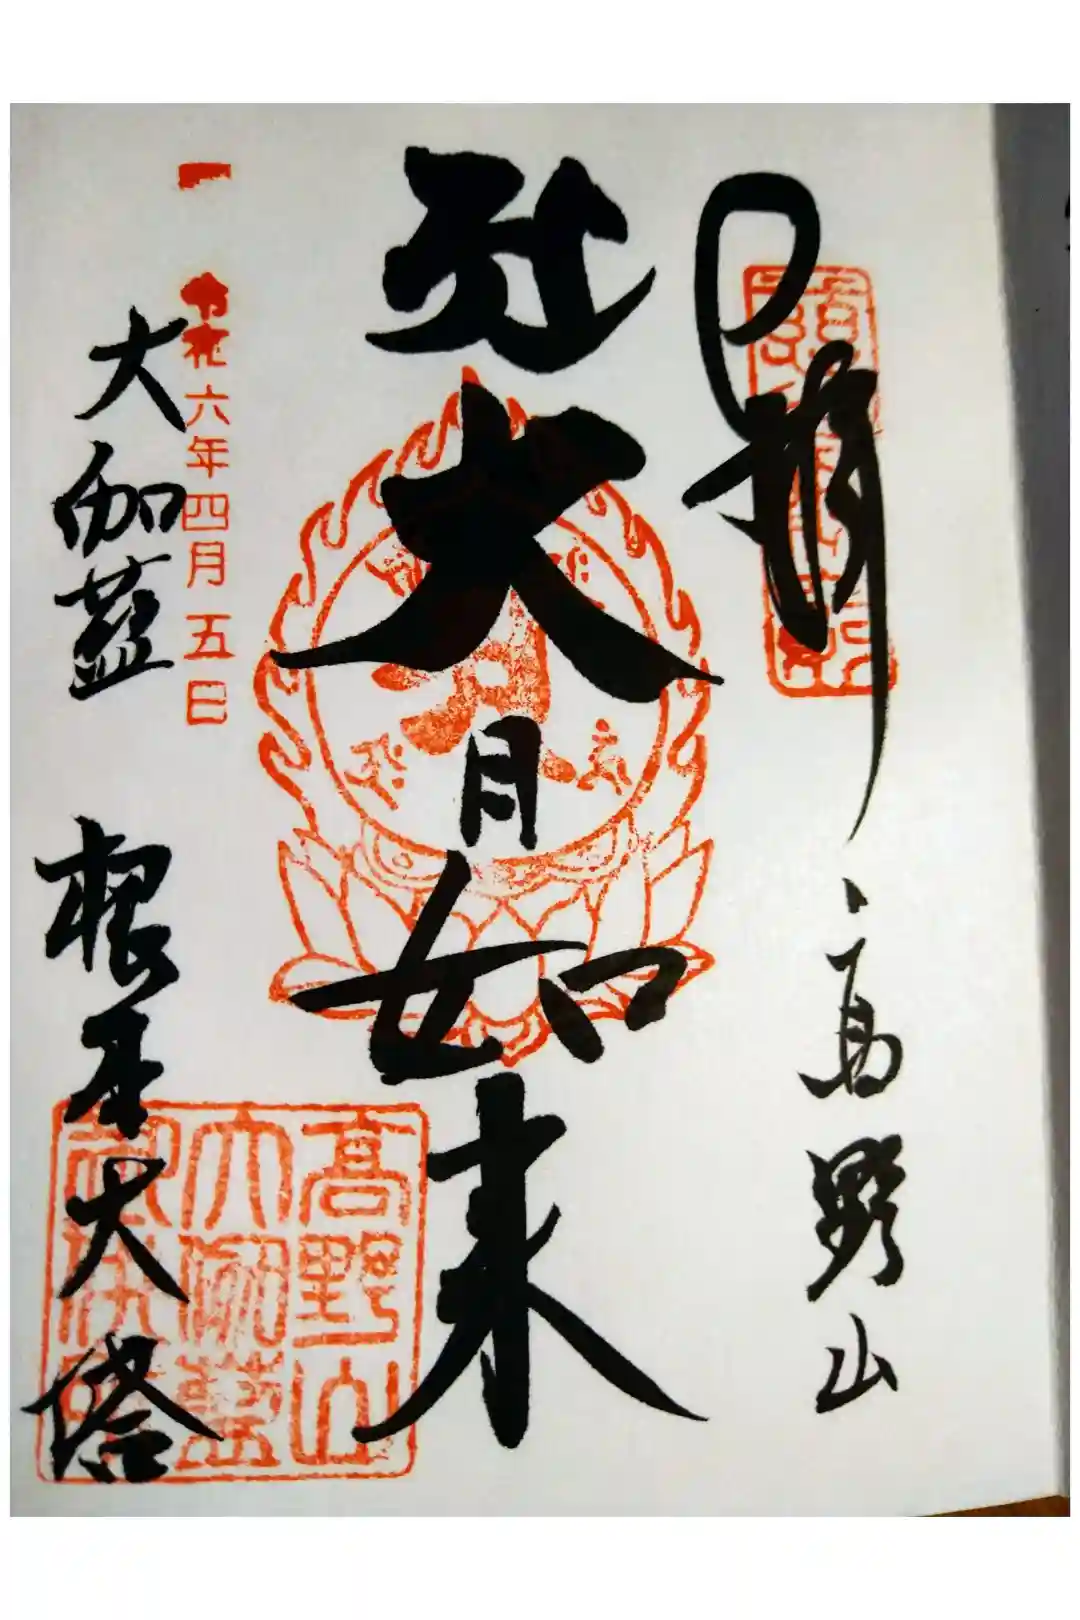 奉拝
高野山
大日如来
令和六年四月五日
大伽藍 根本大塔
高野山
大伽藍
御供所